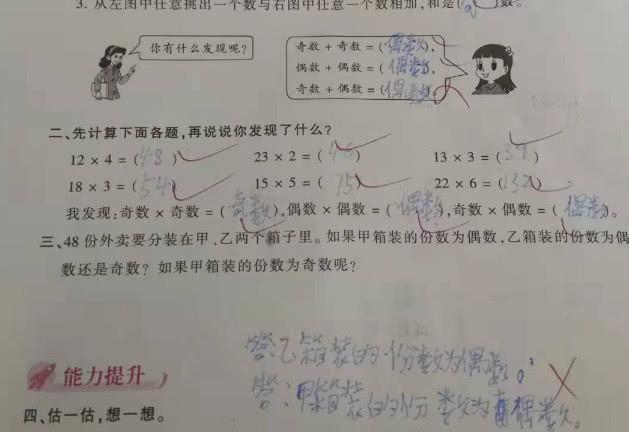 3. 从左图中任意挑出一个数与右图中任意一个数相加,和是()数。
你有什么发现呢?
奇数 + 奇数 = (偶数),
偶数 + 偶数 = (偶数),
奇数 + 偶数 = (偶数)
二、先计算下面各题,再说说你发现了什么?
12 × 4 = (48) 23 × 2 = (46) 13 × 3 = (39)
18 × 3 = (54) 15 × 5 = (75) 22 × 6 = (132)
我发现:奇数 × 奇数 = (奇数),偶数 × 偶数 = (偶数),奇数 × 偶数 = (偶数)。
三、48 份外卖要分装在甲、乙两个箱子里。如果甲箱装的份数为偶数,乙箱装的份数为偶
数还是奇数? 如果甲箱装的份数为奇数呢?
答:乙箱装的份数为偶数。
答:甲箱装的份数为偶数。
能力提升
四、估一估,想一想。